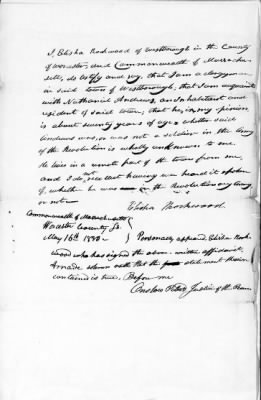 I, Elisha Rockwood of Westborough in the County
of Worcester, and Commonwealth of Massachu-
setts, do testify and say, that I am a clergyman
in said town of Westborough, that I am acquainted
with Nathaniel Andrews, an Inhabitant and
resident of said town, that he, in my opinion
is about seventy years of age & whether said
Andrews was, or was not a soldier in the Army
of the Revolution is wholly unknown to me.
He lives in a remote part of the town from me,
and I do not recollect having ever heard it spoken
of, whether he was in the Revolutionary Army
or not
Elisha Rockwood
Commonwealth of Massachusetts
Worcester County Ss.
May 16th
Personally appeared Elisha Rock-
wood who has signed the above written affidavit
& made solemn oath that the statement therein
contained is true, Before me
Onslow Peters Justice of the Peace